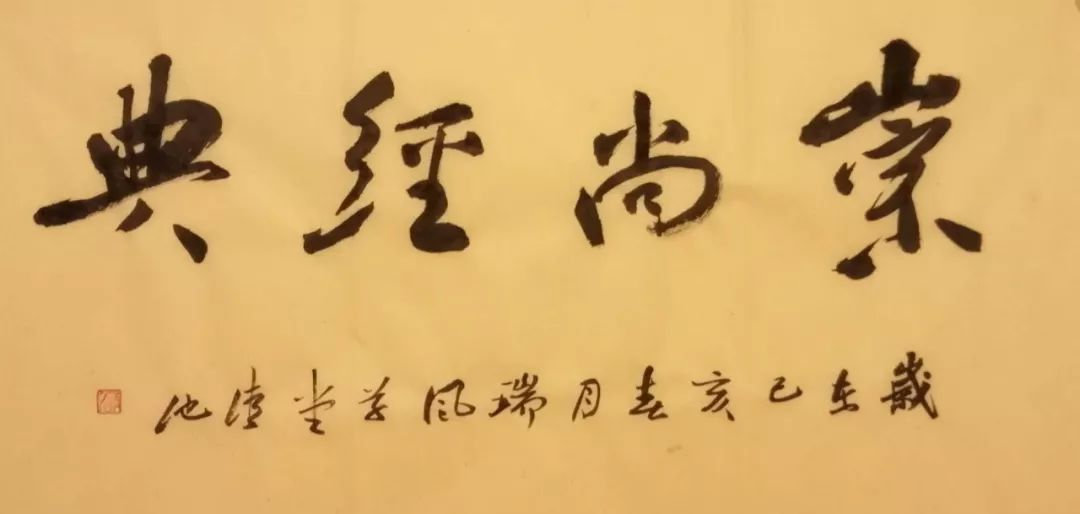 崇尚經典
歲在己亥春月瑞风草堂池